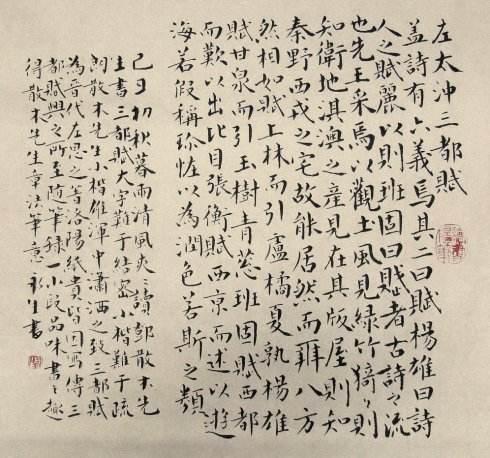 左太沖三都賦
蓋詩有六義焉其二曰賦楊雄曰詩
人之賦麗以則班固曰賦者古詩之流
也先王采焉以觀土風見綠竹猗々則
知衛地淇澳之產見在其版屋則知
秦野西戎之宅故能居然而辨八方
然相如賦上林而引盧橘夏熟楊雄
賦甘泉而引玉樹青蔥班固賦西都
而歎以出比目張衡賦西京而述以遊
海若假稱珍怪以為潤色若斯之類
己丑初秋暮雨清風爽々讀鄧散木先
生書三都賦大字難于結密小楷難于疏
朗散木先生小楷雄渾中瀟洒之致三都賦
為晉代左思之著洛陽紙貴皆因寫傳三
都賦興之所至隨筆錄一小段品味書之趣
得散木先生章法筆意生書